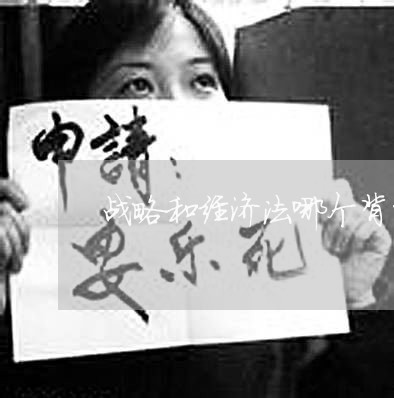 申請：
战略和经济法哪个背
安乐死